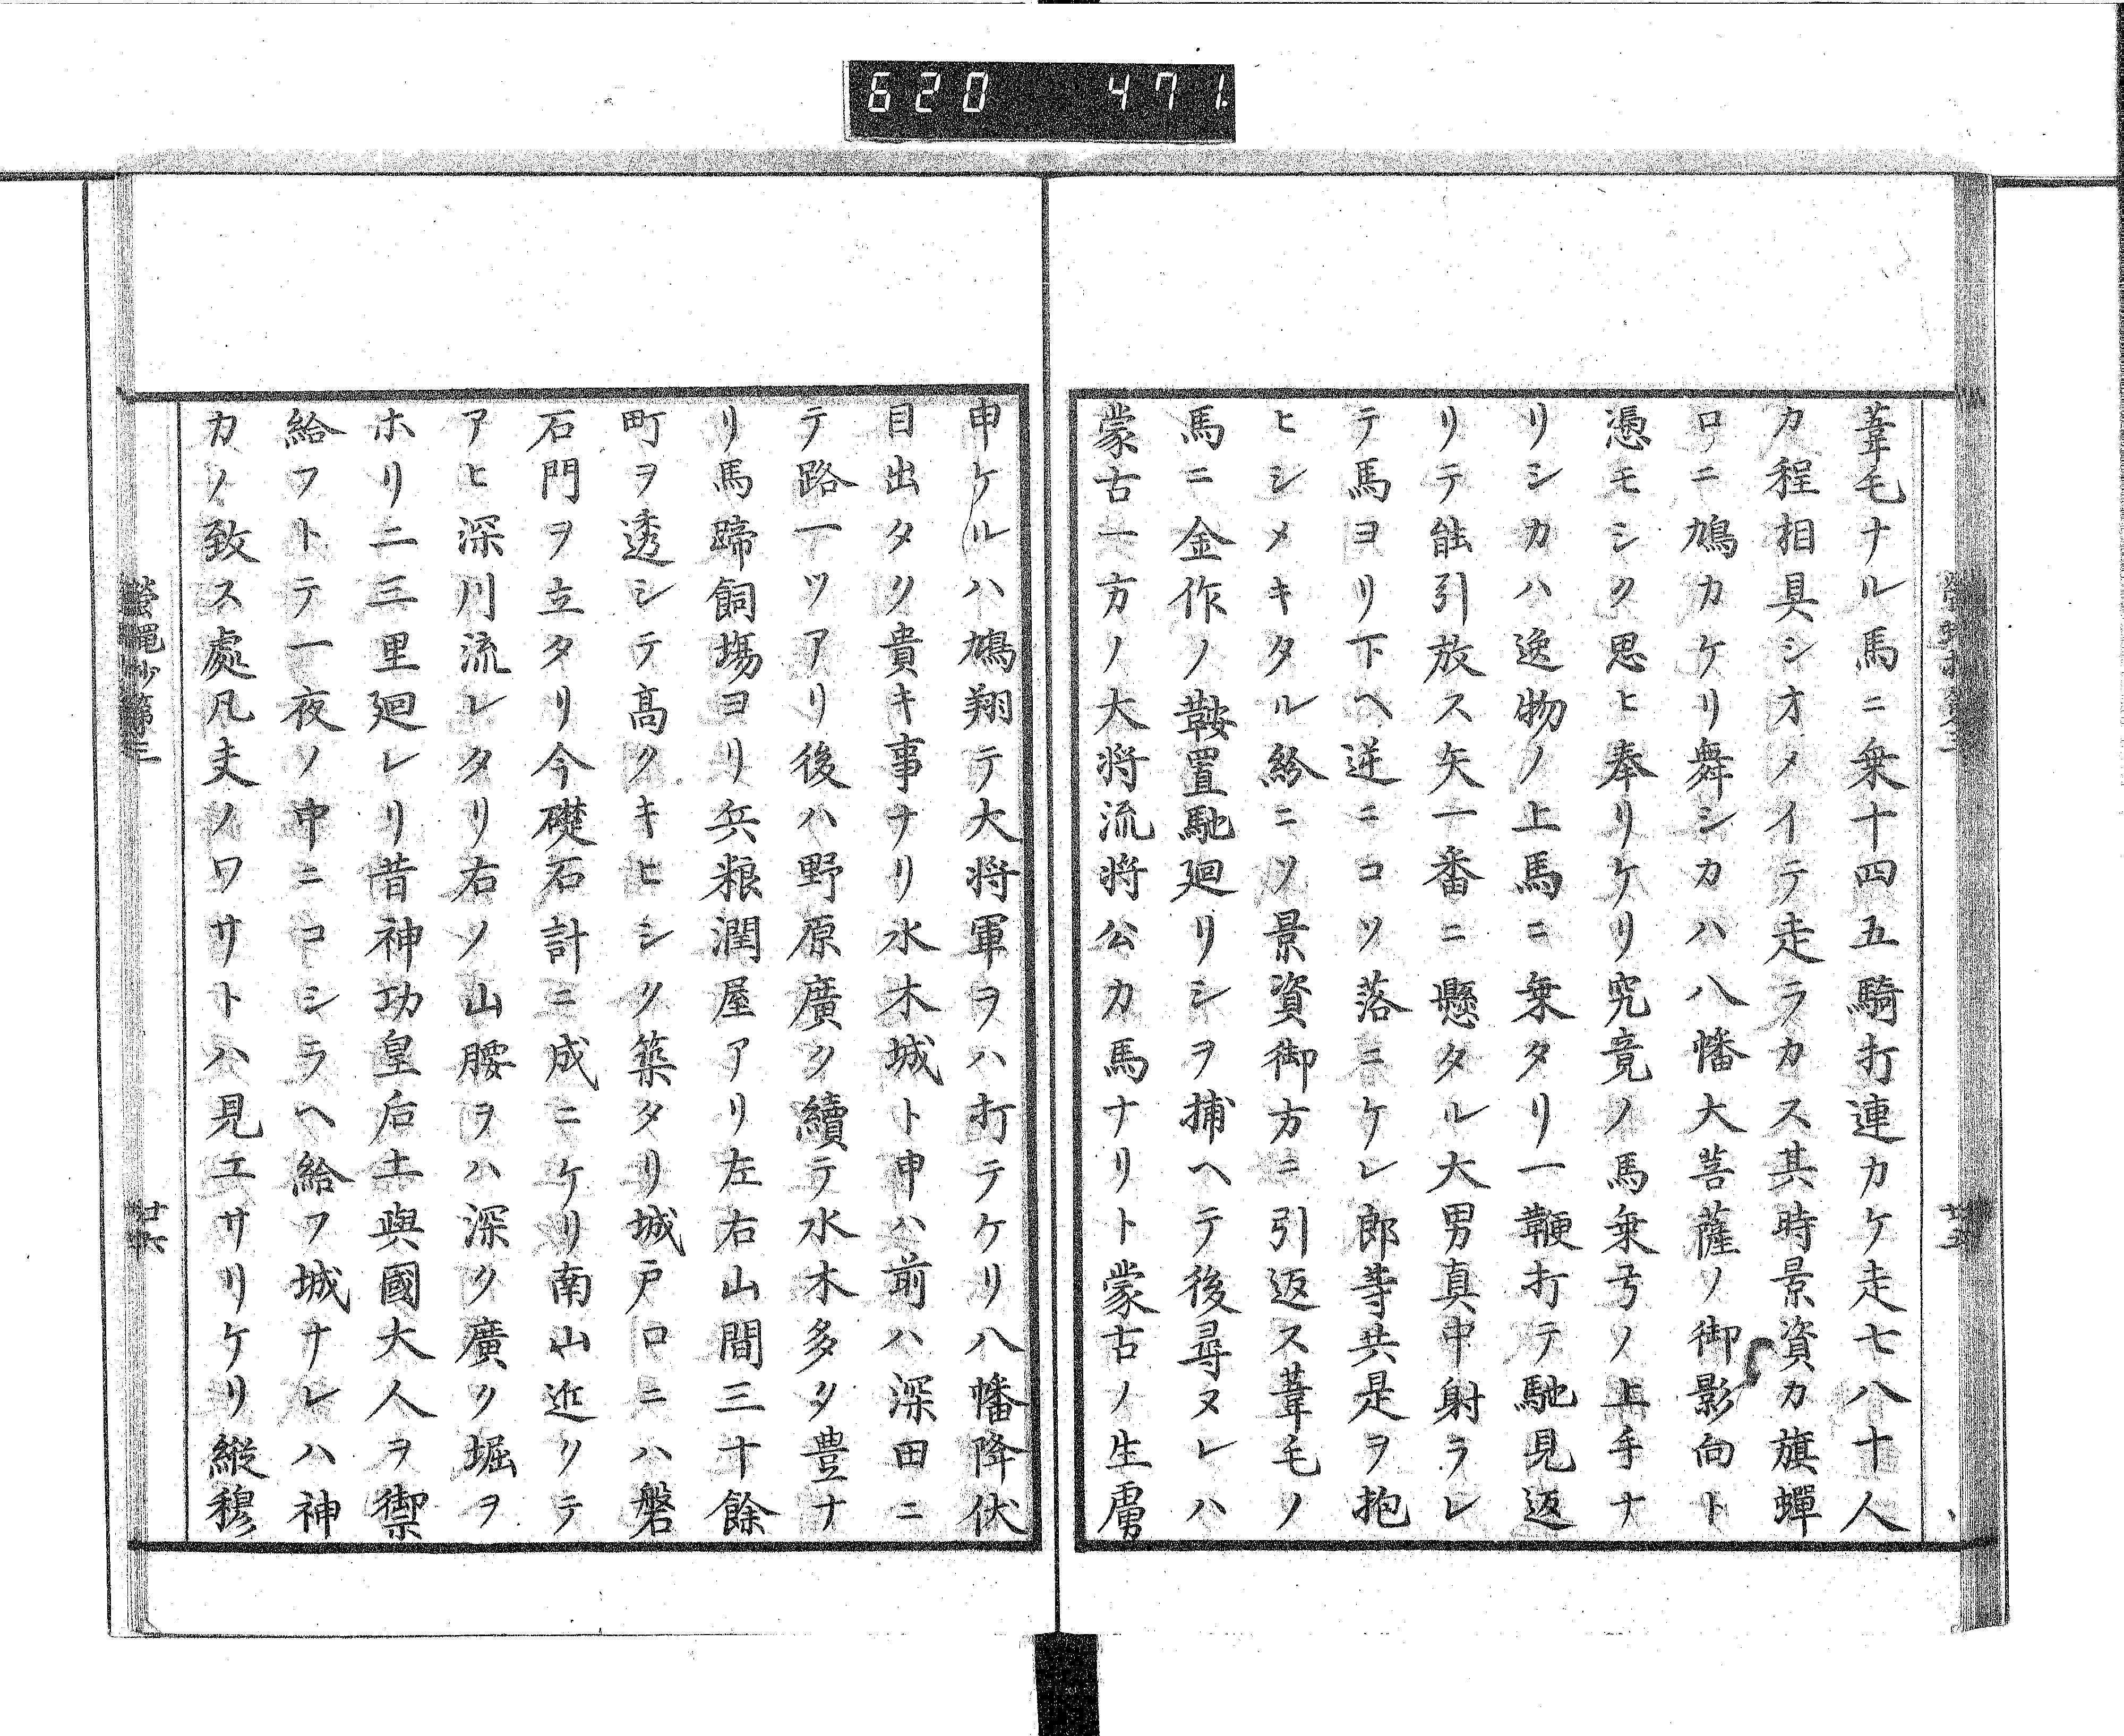 620 471.
葦毛ナル馬ニ乗十四五騎打連カケ走七八十人
カ程相具シオメイテ走ラカス其時景資カ旗蟬
ロニ鳩カケリ舞シカハ八幡大菩薩ノ御影向ト
憑モシク思ヒ奉リケリ究竟ノ馬乗弓ノ上手ナ
リシカハ逸物ノ上馬ニ乗タリ一鞭打テ馳見返
リテ能引放ス矢一番ニ懸タル大男真中射ラレ
テ馬ヨリ下ヘ逆ニコソ落ニケレ郎等共是ヲ抱
ヒシメキタル紛ニソ景資御方ニ引返ス葦毛ノ
馬ニ金作ノ鞍置馳廻リシヲ捕ヘテ後尋ヌレハ
蒙古一方ノ大将流将公カ馬ナリト蒙古ノ生虜
申ケルハ鳩翔テ大将軍ヲハ打テケリ八幡降伏
目出タク貴キ事ナリ水木城ト申ハ前ハ深田ニ
テ路一ツアリ後ハ野原廣ク續テ水木多タ豊ナ
リ馬蹄飼場ヨリ兵粮潤屋アリ左右山間三十餘
町ヲ透シテ髙クキヒシク築タリ城戸ロニハ磐
石門ヲ立タリ今礎石計ニ成ニケリ南山近クテ
アヒ深川流レタリ右ノ山腰ヲハ深ク廣ク堀ヲ
ホリ二三里廻レリ昔神功皇后土與國大人ヲ禦
給フトテ一夜ノ中ニコシラヘ給フ城ナレハ神
カノ致ス處凡夫ノワサトハ見エサリケリ縱穆
螢蠅抄第三
廿六